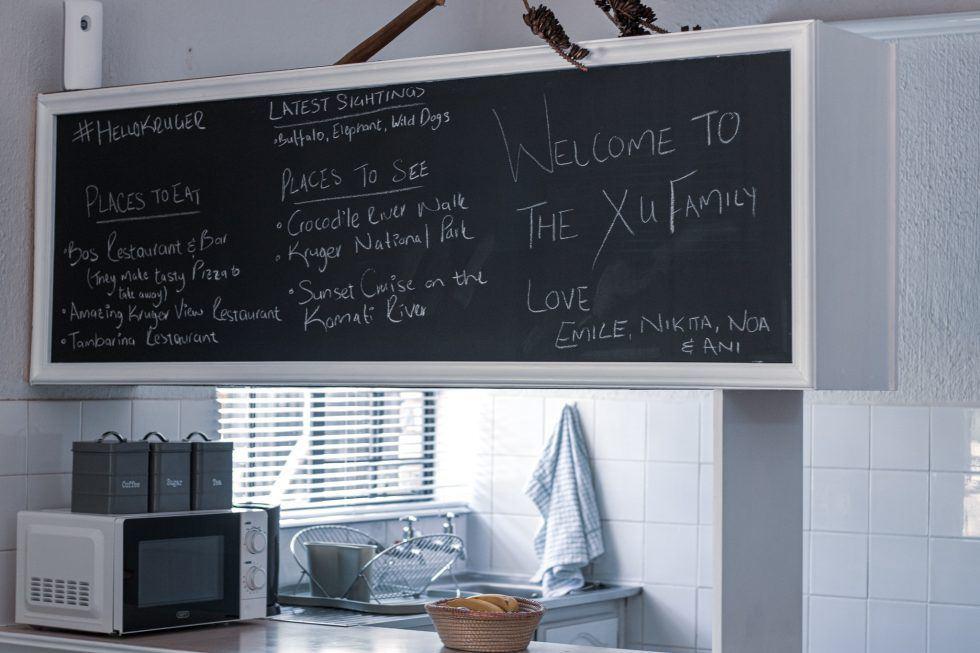 #HELLOKRUGER
PLACES TO EAT
• Bos Restaurant & Bar
(They make tasty Pizza to
take away)
• Amazing Kruger View Restaurant
• Tambarina Restaurant
LATEST SIGHTINGS
• Buffalo, Elephant, Wild Dogs
PLACES TO SEE
• Crocodile River Walk
• Kruger National Park
• Sunset Cruise on the
Komati River
WELCOME TO
THE XU FAMILY
LOVE
EMILE, NIKITA, NOA
& ANI
Coffee
Sugar
Tea